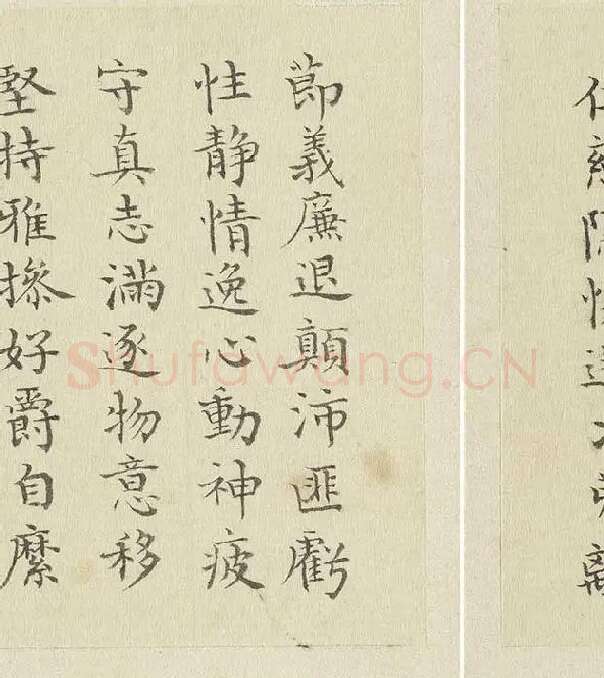 仁慈隱惻造次弗離
節義廉退顛沛匪虧
性静情逸心動神疲
守真志滿逐物意移
堅持雅操好爵自縻
Shufawang.CN